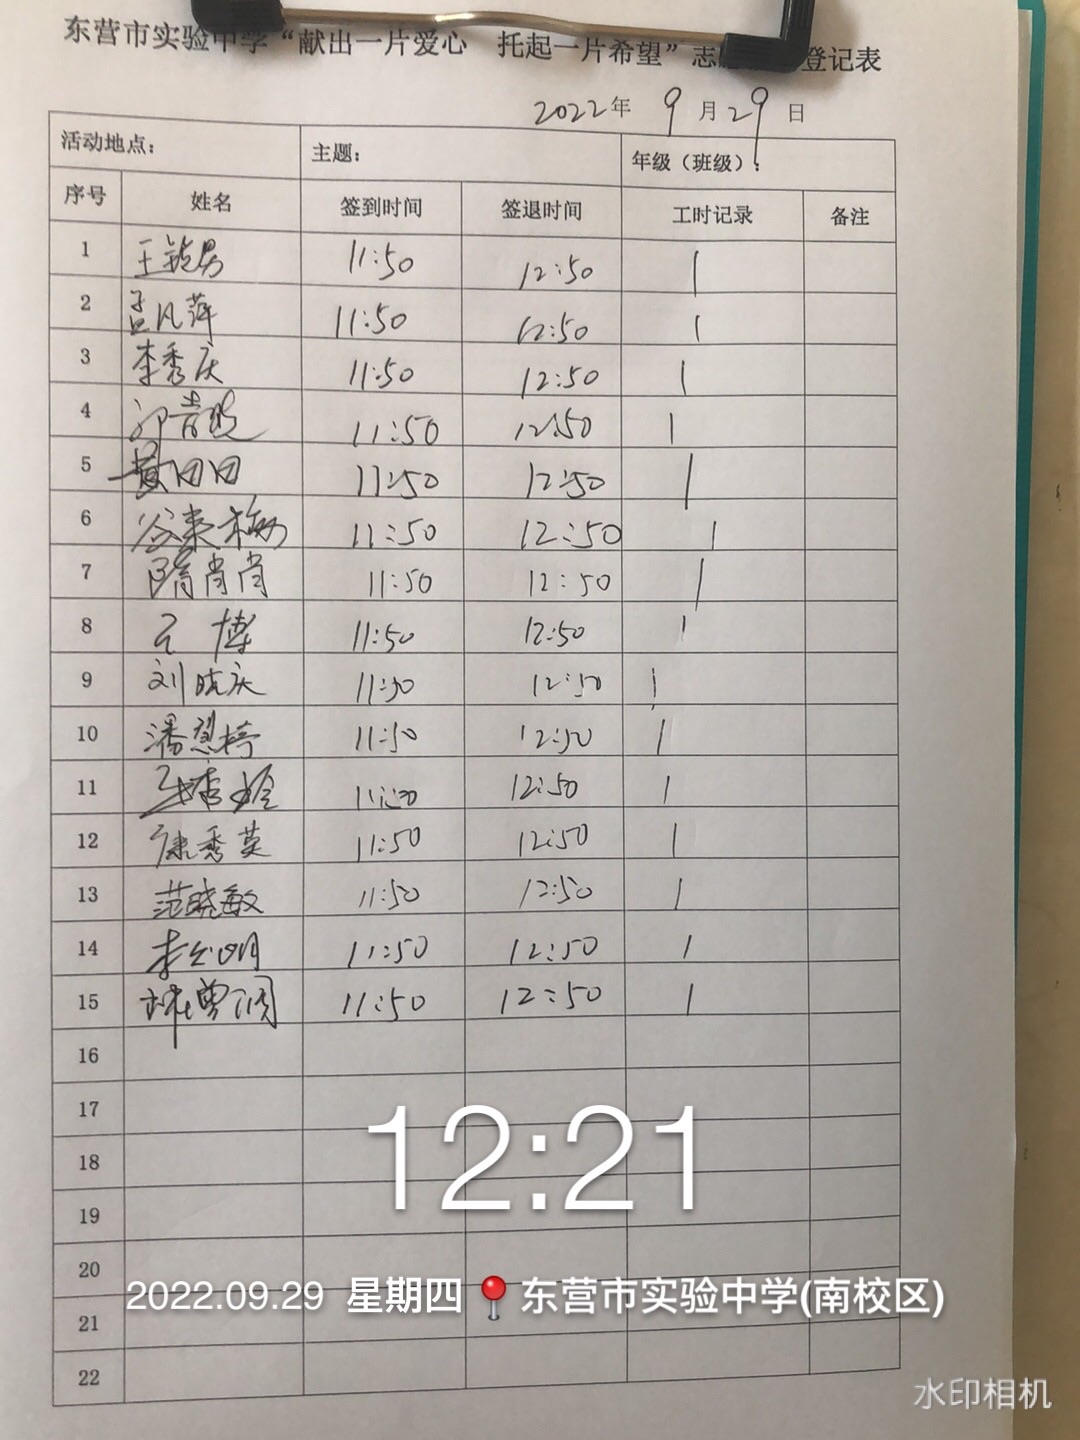 东营市实验中学“献出一片爱心 托起一片希望”志 登记表
2022年 9月29日
活动地点： 主题： 年级（班级）：
序号 姓名 签到时间 签退时间 工时记录 备注
1 王 男 11:50 12:50 1
2 孟凡萍 11:50 12:50 1
3 李秀庆 11:50 12:50 1
4 11:50 12:50 1
5 黄田田 11:50 12:50 1
6 谷 梅 11:50 12:50 1
7 隋肖肖 11:50 12:50 1
8 博 11:50 12:50 1
9 刘晓庆 11:50 12:50 1
10 潘 婷 11:50 12:50 1
11 12:50 1
12 康秀英 11:50 12:50 1
13 范晓敏 11:50 12:50 1
14 李 明 11:50 12:50 1
15 11:50 12:50 1
16
17
12:21
18
19
20
2022.09.29 星期四 东营市实验中学(南校区)
21
22
水印相机